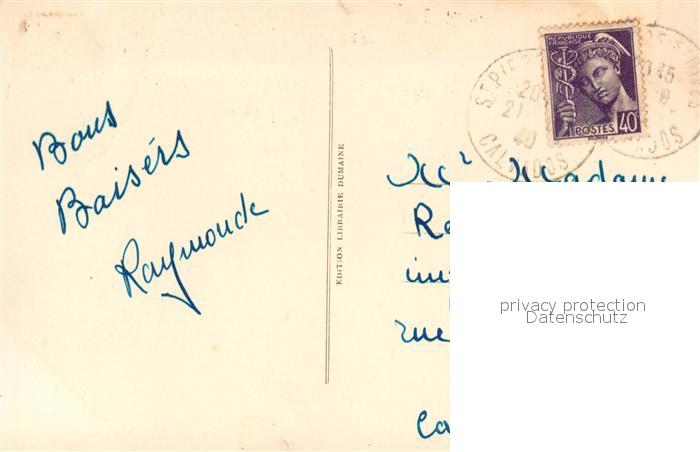 Bons
Baisérs
Raymonde
EDITION LIBRAIRIE DUMAINE
REPUBLIQUE
FRANÇAISE
POSTES 40
20
21
40
CALVADOS
Mr Madame
rue
privacy protection
Datenschutz